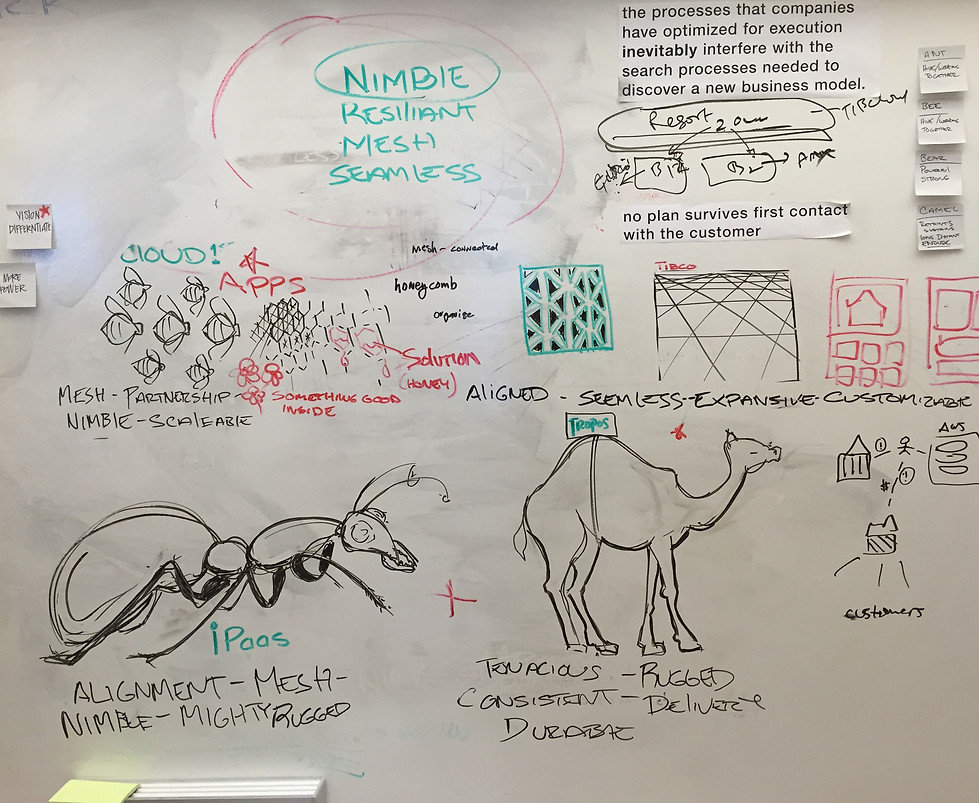 the processes that companies
have optimized for execution
inevitably interfere with the
search processes needed to
discover a new business model.
NIMBLE
RESILIANT
MESH
SEAMLESS
Resort
no plan survives first contact
with the customer
ANT
HIVE/WORKING
TOGETHER
BEE
HIVE/WORKING
TOGETHER
BEAR
POWERFUL
STRONG
CAMEL
VISION
DIFFERENTIATE
MORE
POWER
CLOUD 1ST
APPS
mesh - connected
honeycomb
organise
SOLUTION
(HONEY)
TIBCO
MESH - PARTNERSHIP -
SOMETHING GOOD
INSIDE
NIMBLE - SCALEABLE
ALIGNED - SEEMLESS - EXPANSIVE - CUSTOMIZIABLE
TROPOS
AWS
$
customers
iPaas
ALIGNMENT - MESH -
NIMBLE - MIGHTY RUGGED
TENACIOUS - RUGGED
CONSISTENT - DELIVERY
DURABLE